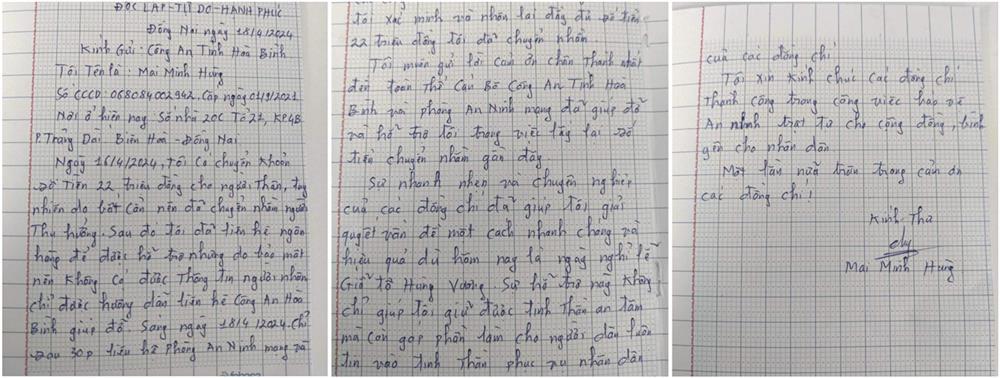 ĐỘC LẬP-TỰ DO-HẠNH PHÚC
Đồng Nai ngày 18/4/2024
Kính Gửi: Công An Tỉnh Hoà Bình
Tôi Tên là: Mai Minh Hưng
Số CCCD: 068084002942. Cấp ngày 01/9/2021
Nơi ở hiện nay Số nhà 20C Tổ 21, KP4B
P. Trảng Dài Biên Hoà - Đồng Nai
Ngày 16/4/2024, Tôi có chuyển khoản
số Tiền 22 triệu đồng cho người Thân, tuy
nhiên do bất cẩn nên đã chuyển nhầm người
Thụ hưởng. Sau đó tôi đã liên hệ ngân
hàng để được hỗ trợ nhưng do bảo mật
nên Không có được Thông tin người nhận
chỉ được hướng dẫn liên hệ Công An Hoà
Bình giúp đỡ. Sáng ngày 18/4/2024. Chỉ
sau 30p liên hệ Phòng An Ninh mạng và
tôi xác minh và nhận lại đầy đủ số tiền
22 triệu đồng tôi đã chuyển nhầm.
Tôi muốn gửi lời cảm ơn chân Thành nhất
đến toàn Thể Cán Bộ Công An Tỉnh Hoà
Bình và phòng An Ninh mạng đã giúp đỡ
và hỗ trợ tôi trong việc lấy lại số
tiền chuyển nhầm gần đây.
Sự nhanh nhẹn và chuyên nghiệp
của các đồng chí đã giúp tôi giải
quyết vấn đề một cách nhanh chóng và
hiệu quả dù hôm nay là ngày nghỉ lễ
Giỗ tổ Hùng Vương. Sự hỗ trợ này Không
chỉ giúp tôi giữ được tinh Thần an tâm
mà còn góp phần làm cho người dân luôn
tin vào tinh Thần phục vụ nhân dân
của các đồng chí
Tôi xin Kính chúc các đồng chí
Thành công trong công việc bảo vệ
An ninh trật tự cho cộng đồng, bình
yên cho nhân dân.
Một lần nữa trân trọng cảm ơn
các đồng chí!
Kính Thư
Mai Minh Hưng